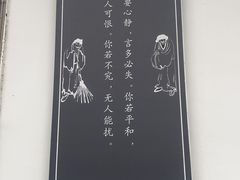 要心静，言多必失。你若平和，
人可恨。你若不完，无人能扰。